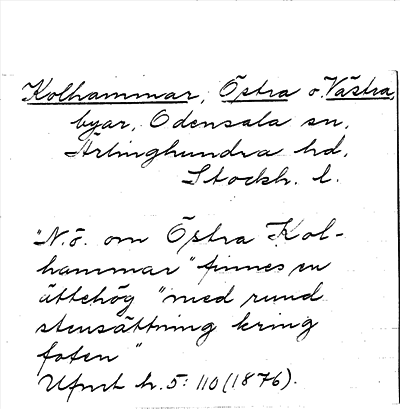 Kolhammar, Östra o. Västra,
byar, Odensala sn,
Ärlinghundra hd,
Stockh. l.
"N.ö. om Östra Kol-
hammar" finnes en
ättehög "med rund
stensättning kring
foten"
Ufmt h. 5: 110 (1876).